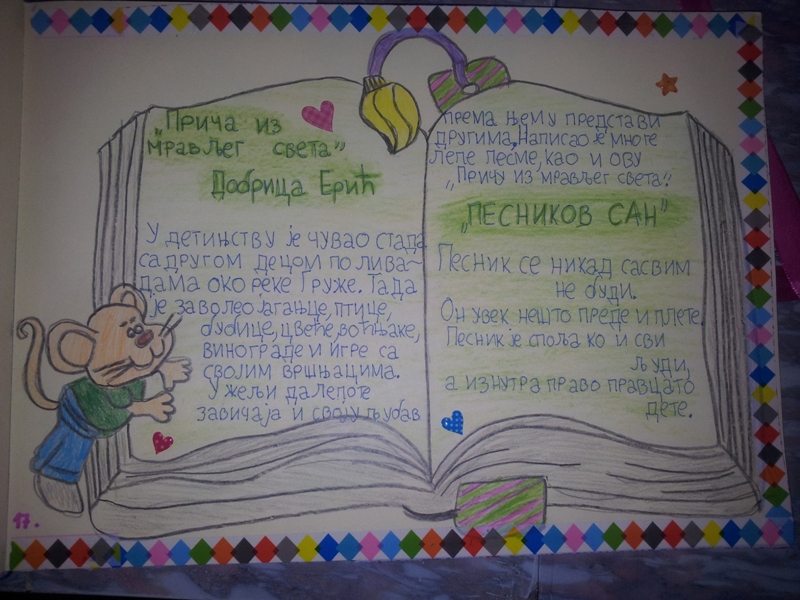 „Прича из
мрављег света”
Добрица Ерић
У детињству је чувао стада
са другом децом по лива~
дама око реке Груже. Тада
је заволео јагањце, птице,
бубице, цвеће, воћњаке,
винограде и игре са
својим вршњацима.
У жељи да лепоте
завичаја и своју љубав
према њему представи
другима, написао је многе
лепе песме, као и ову
„Причу из мрављег света”.
„ПЕСНИКОВ САН”
Песник се никад сасвим
не буди.
Он увек нешто преде и плете.
Песник је споља ко и сви
људи,
а изнутра право правцато
дете.
17.